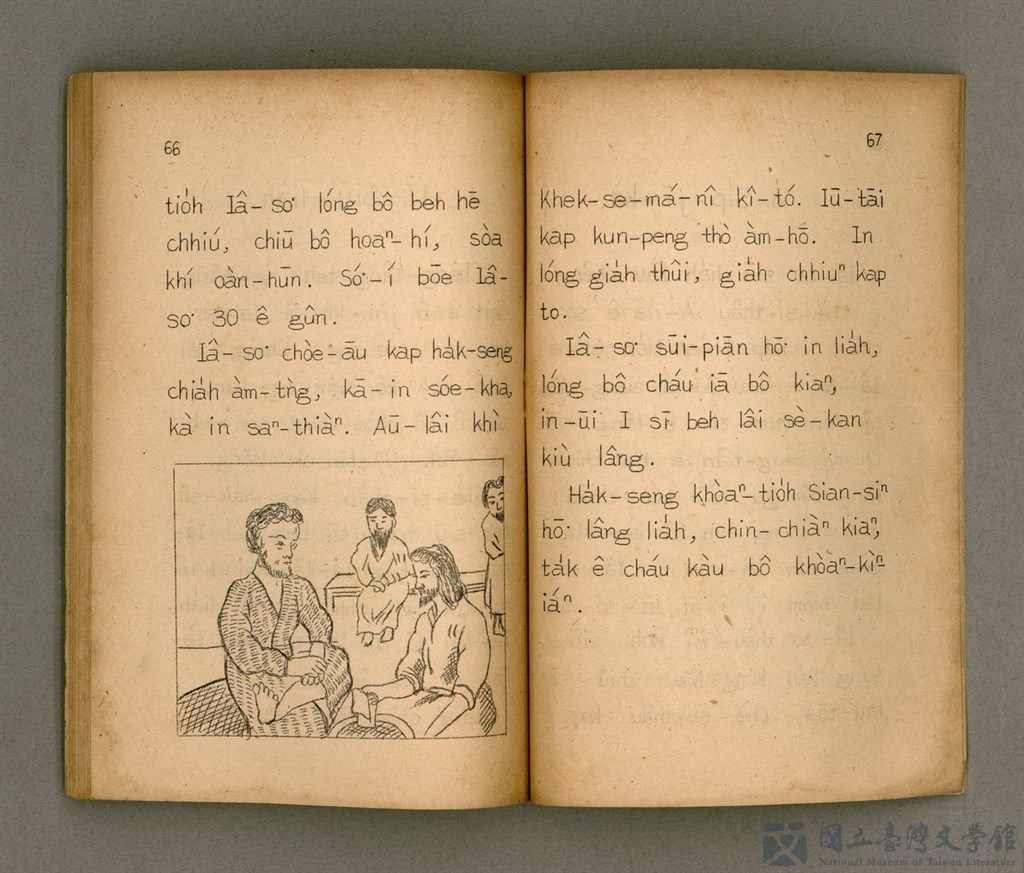 66
tio̍h Iâ-so͘ lóng bô beh hē
chhiú, chiū bô hoaⁿ-hí, sòa
khí oàn-hūn. Só͘-í bōe Iâ-
so͘ 30 ê gûn.
Iâ-so͘ chòe-āu kap ha̍k-seng
chia̍h àm-tǹg, kā-in sóe-kha,
kà in saⁿ-thiàⁿ. Āu-lâi khì
67
Khek-se-má-nî kî-tó. Iū-tāi
kap kun-peng thò àm-hō. In
lóng gia̍h thûi, gia̍h chhiuⁿ kap
to.
Iâ-so͘ sūi-piān hō͘ in lia̍h,
lóng bô cháu iā bô kiaⁿ,
in-ūi I sī beh lâi sè-kan
kiù lâng.
Ha̍k-seng khòaⁿ-tio̍h Sian-siⁿ
hō͘ lâng lia̍h, chin-chiàⁿ kiaⁿ,
ta̍k ê cháu kàu bô khòàⁿ-kìⁿ-
iáⁿ.
國立臺灣文學館
National Museum of Taiwan Literature